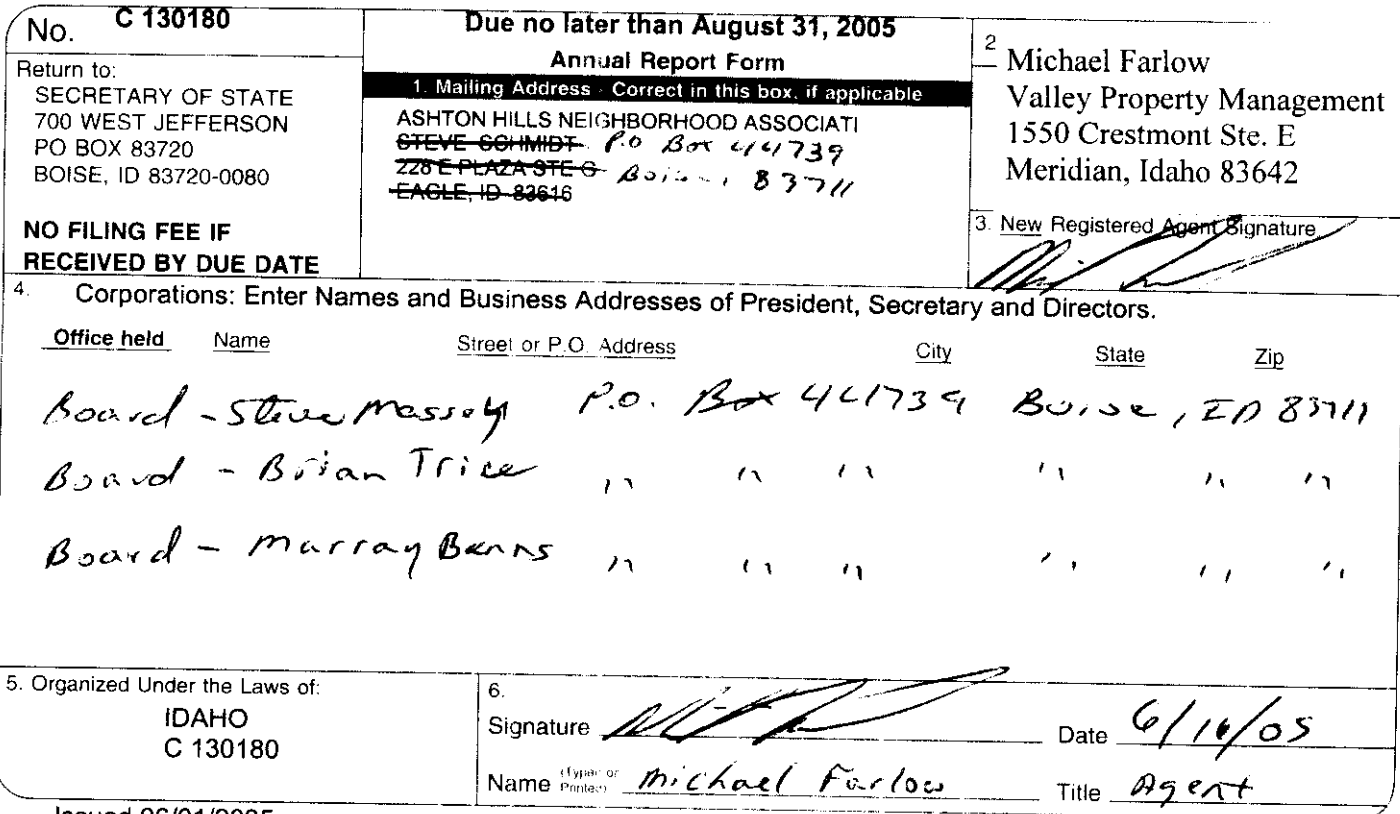 No. C 130180
Return to:
SECRETARY OF STATE
700 WEST JEFFERSON
PO BOX 83720
BOISE, ID 83720-0080
NO FILING FEE IF
RECEIVED BY DUE DATE
Due no later than August 31, 2005
Annual Report Form
1. Mailing Address - Correct in this box, if applicable
ASHTON HILLS NEIGHBORHOOD ASSOCIATI
STEVE SCHMIDT P.O Box 44739
228 E PLAZA STE G Boise, 83711
EAGLE, ID 83616
2
Michael Farlow
Valley Property Management
1550 Crestmont Ste. E
Meridian, Idaho 83642
3. New Registered Agent Signature
4. Corporations: Enter Names and Business Addresses of President, Secretary and Directors.
Office held Name Street or P.O. Address City State Zip
Board - Steve Massey P.O. Box 44739 Boise, ID 83711
Board - Brian Trice " " " " " "
Board - Murray Banns " " " " " "
5. Organized Under the Laws of:
IDAHO
C 130180
6.
Signature Date 6/16/05
Name (Type or Printed) Michael Farlow Title Agent
Issued 06/01/2005